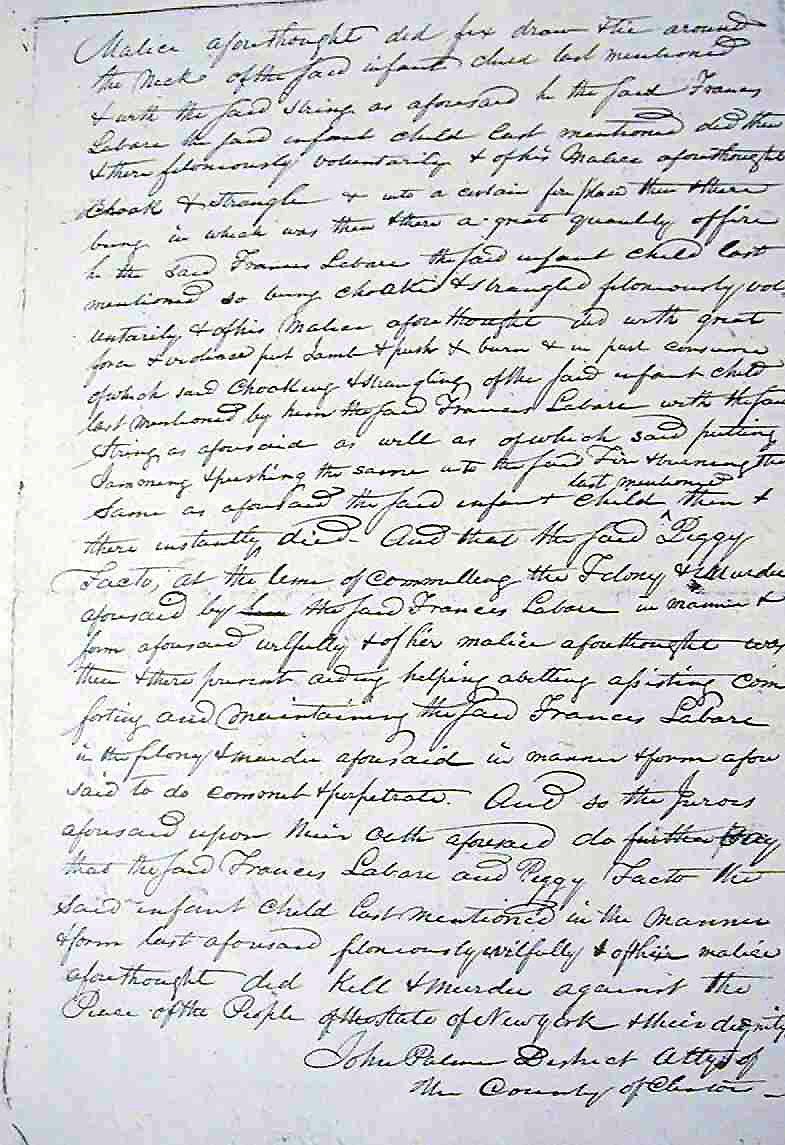 Malice aforethought did fix draw & tie around
the Neck of the said infant child last mentioned
& with the said string as aforesaid he the said Francis
Labare the said infant child last mentioned did then
& there feloniously voluntarily & of his Malice aforethought
Choak & strangle & into a certain fire place then & there
being in which was then & there a great quantity of fire
he the said Francis Labare the said infant child last
mentioned so being choaked & strangled feloniously vol-
untarily & of his Malice aforethought did with great
force & violence put Jamb & push & burn & in part consume
of which said Choaking & strangling of the said infant child
last mentioned by him the said Francis Labare with the said
string as aforesaid as well as of which said putting
Jamming & pushing the same into the said Fire & burning the
same as aforesaid the said infant child last mentioned then &
there instantly died – And that the said Peggy
Facto, at the time of committing the Felony & Murder
aforesaid by the said Francis Labare in manner &
form aforesaid wilfully & of her malice aforethought was
then & there present aiding helping abetting assisting com
forting and maintaining the said Francis Labare
in the felony & murder aforesaid in manner & form afore
said to do commit & perpetrate. And so the Jurors
aforesaid upon their Oath aforesaid do further say
that the said Francis Labare and Peggy Facto the
said infant child last mentioned in the Manner
& form last aforesaid feloniously wilfully & of their malice
aforethought did Kill & Murder against the
Peace of the People of the State of New York & their dignity
John Palmer District Atty of
the County of Clinton –